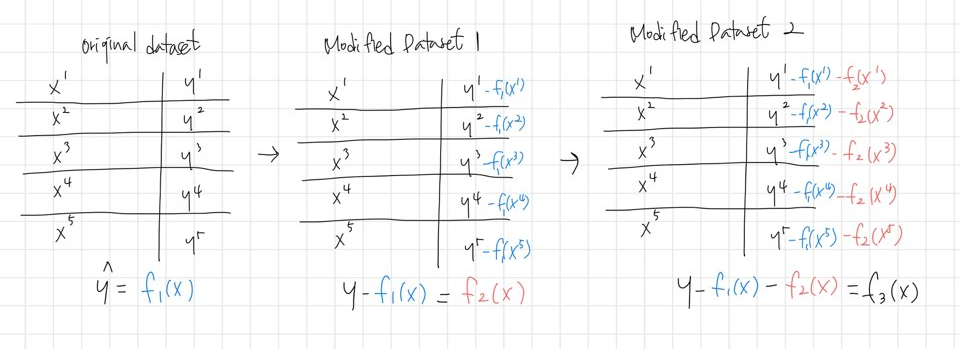 Original dataset
x¹ y¹
x² y²
x³ y³
x⁴ y⁴
x⁵ y⁵
ŷ = f₁(x)
→
Modified Dataset 1
x¹ y¹-f₁(x¹)
x² y²-f₁(x²)
x³ y³-f₁(x³)
x⁴ y⁴-f₁(x⁴)
x⁵ y⁵-f₁(x⁵)
y-f₁(x) = f₂(x)
→
Modified Dataset 2
x¹ y¹-f₁(x¹)-f₂(x¹)
x² y²-f₁(x²)-f₂(x²)
x³ y³-f₁(x³)-f₂(x³)
x⁴ y⁴-f₁(x⁴)-f₂(x⁴)
x⁵ y⁵-f₁(x⁵)-f₂(x⁵)
y-f₁(x)-f₂(x) = f₃(x)